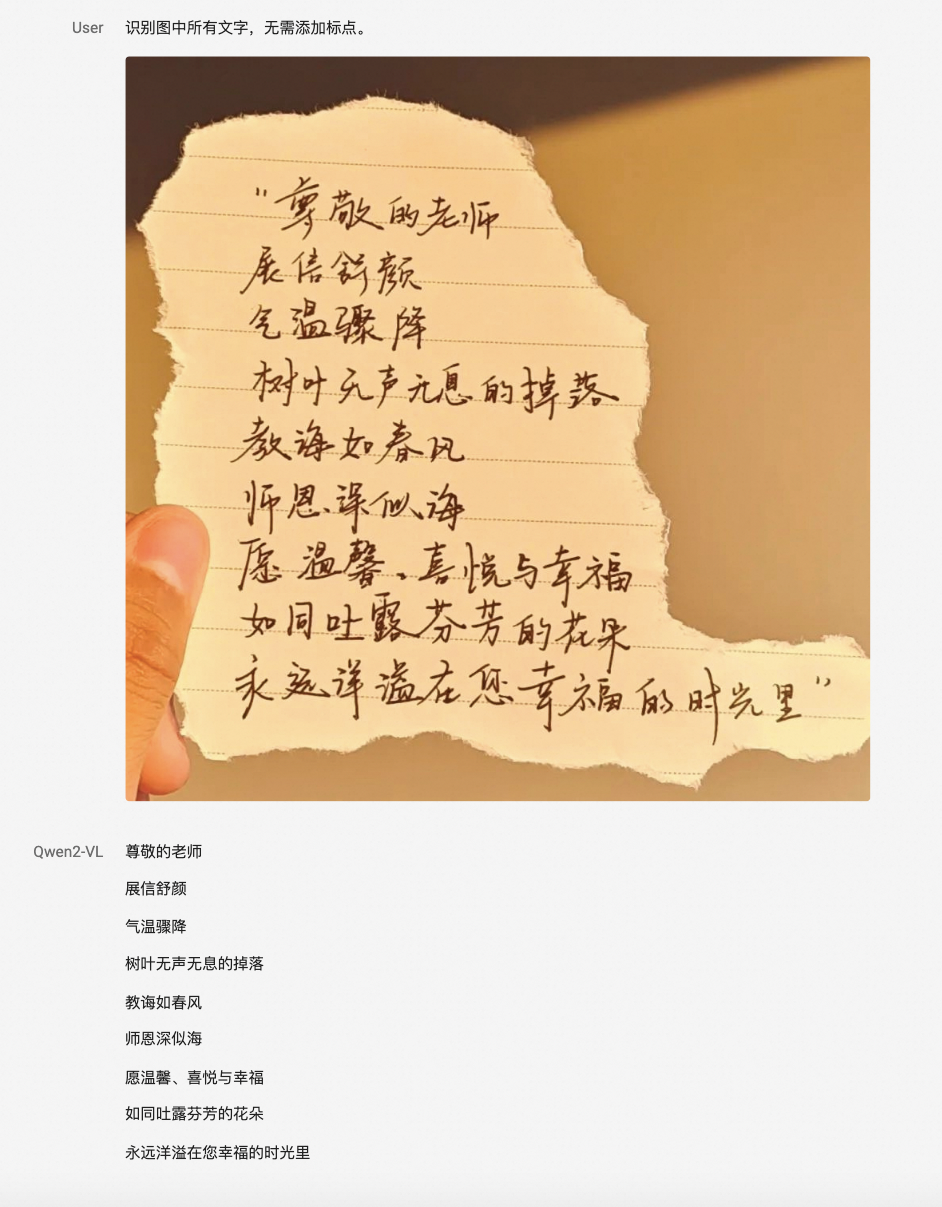 User 识别图中所有文字，无需添加标点。
"尊敬的老师
展信舒颜
气温骤降
树叶无声无息的掉落
教诲如春风
师恩深似海
愿温馨、喜悦与幸福
如同吐露芬芳的花朵
永远洋溢在您幸福的时光里"
Qwen2-VL 尊敬的老师
展信舒颜
气温骤降
树叶无声无息的掉落
教诲如春风
师恩深似海
愿温馨、喜悦与幸福
如同吐露芬芳的花朵
永远洋溢在您幸福的时光里